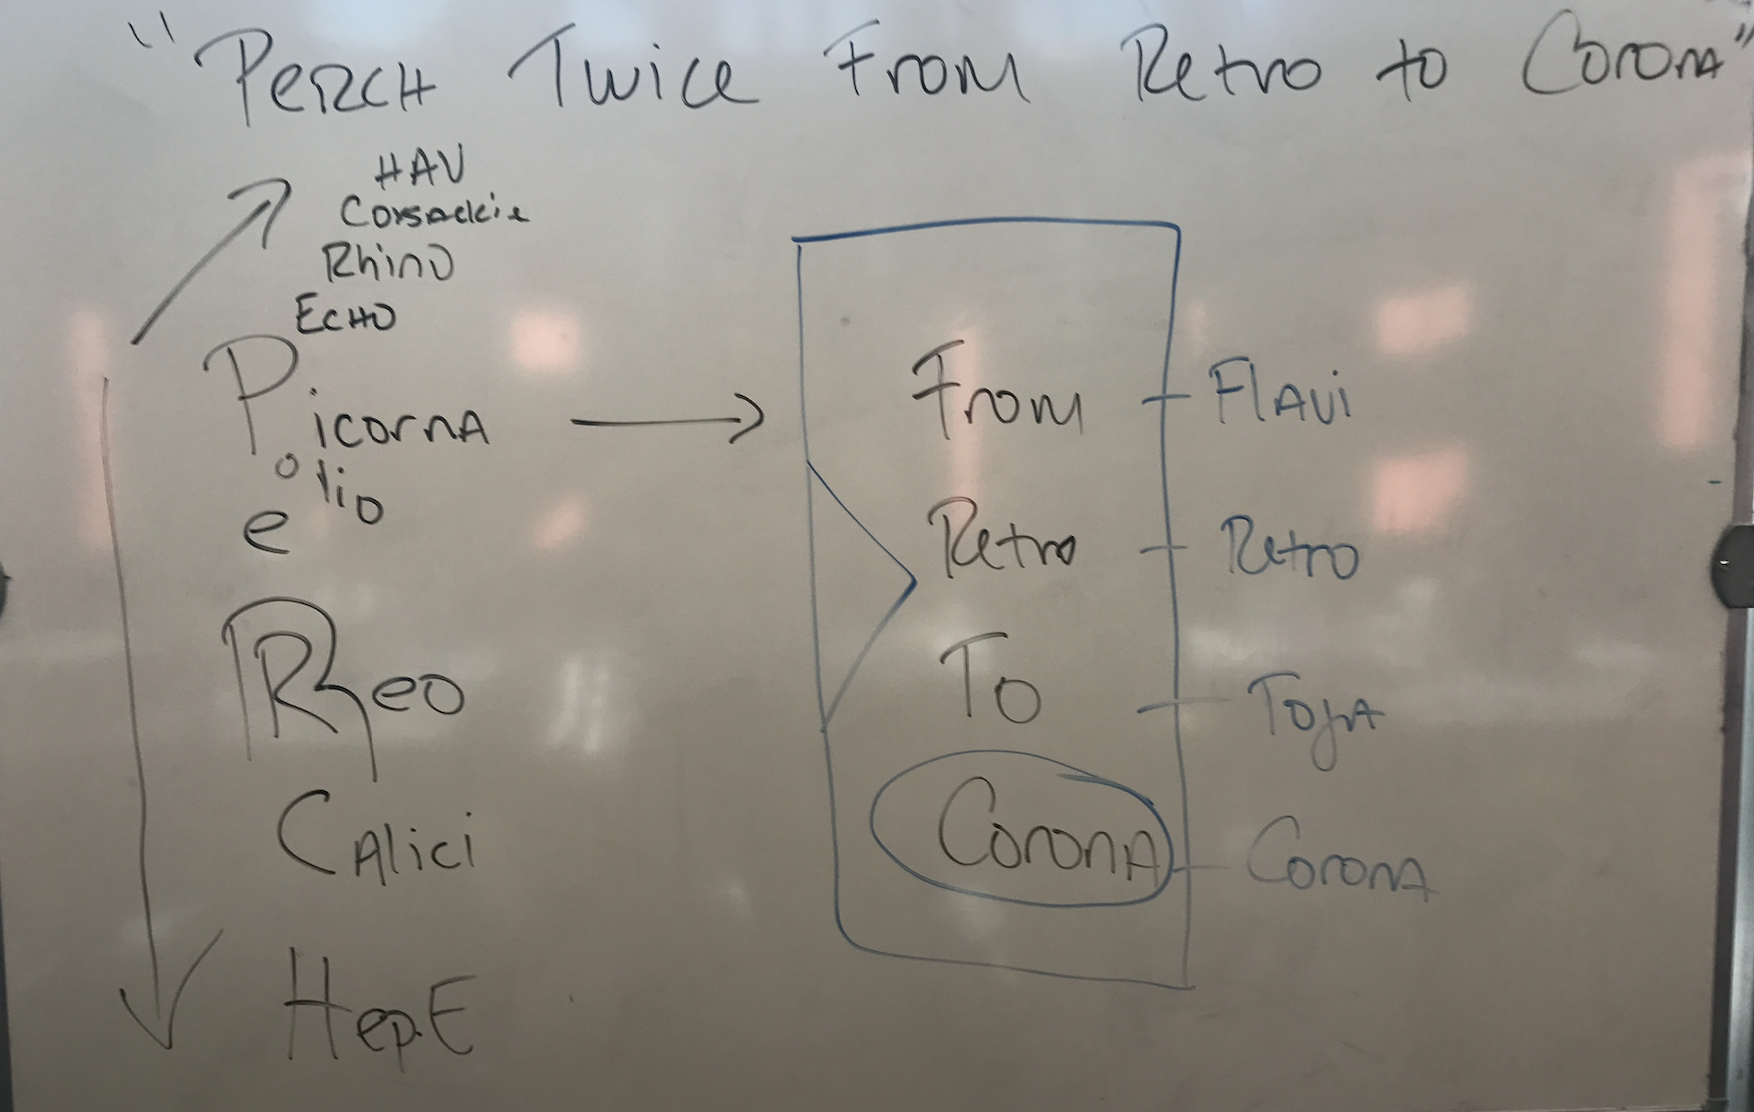 "PERCH Twice From Retro to Corona"
HAV
Coxsackie
Rhino
ECHO
Picorna
olio
e
Rheo
Calici
Hep.E
From - Flavi
Retro - Retro
To - Toga
Corona - Corona